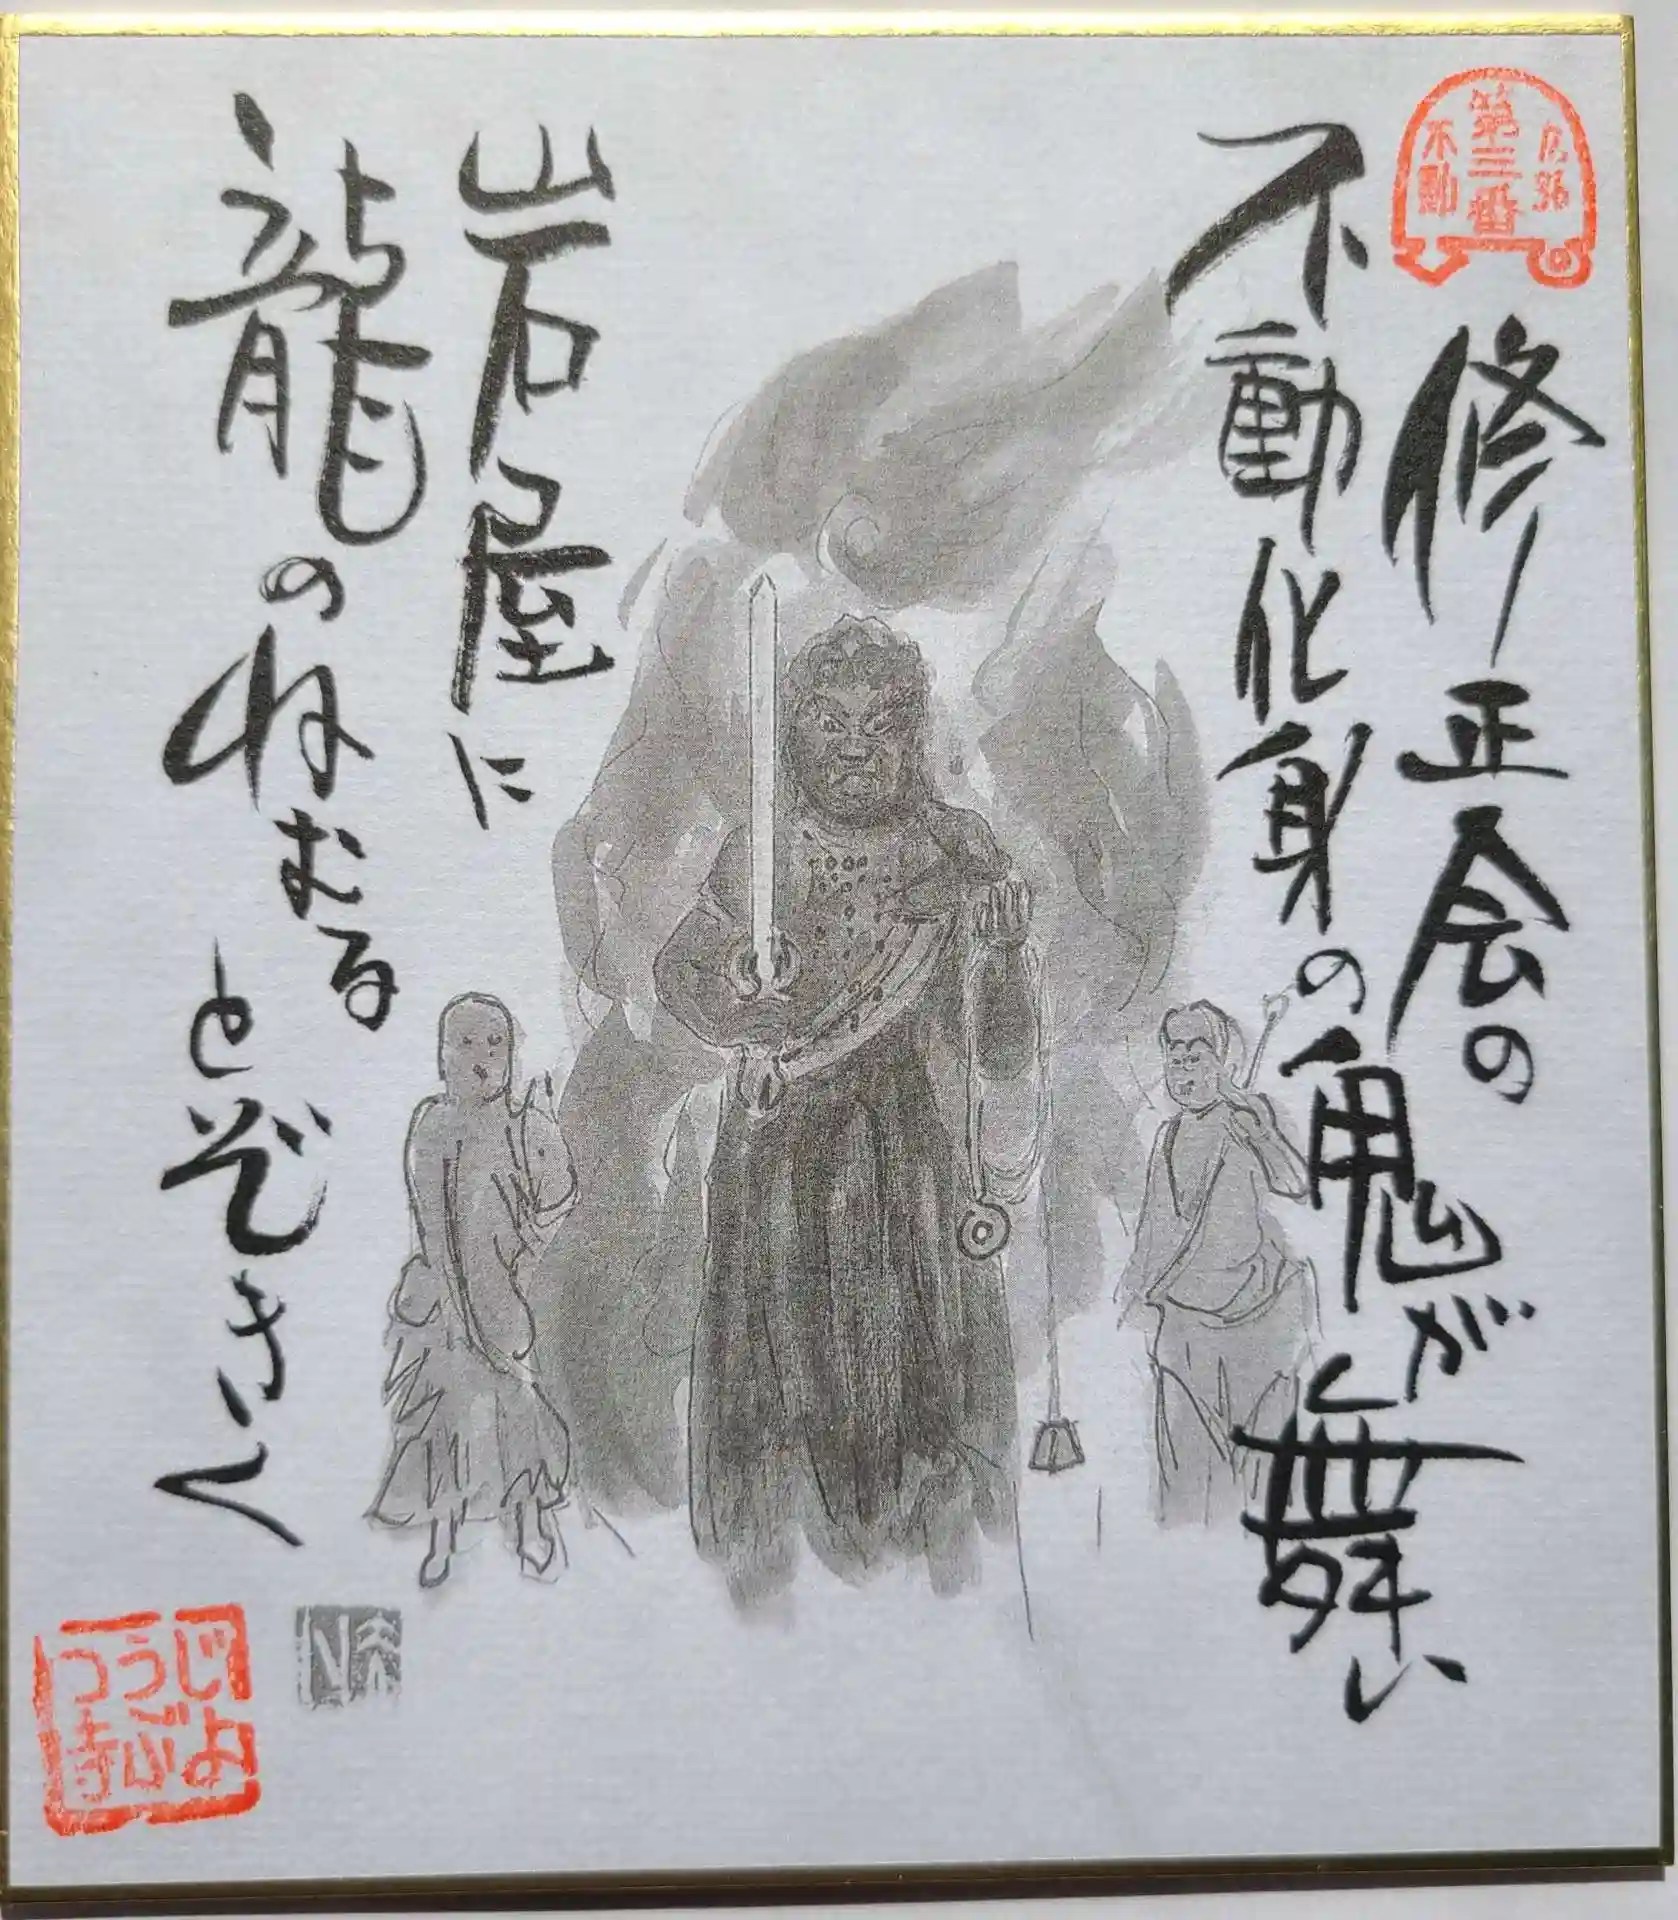 第三番
不動
修正会の
不動化身の鬼が舞い
岩屋に
龍のねむる
とぞきく
じょ
うぶ
つ寺